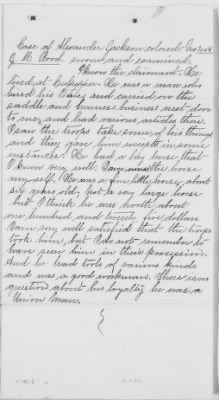 Case of Alexander Jackson colored No 208
J. M. Wood sworn and examined.
I know the claimant. He
lived at Culpepper. He was a man who
hired his time, and carried on the
saddle and harness business next door
to me, and had various articles there.
I saw the troops take some of his things
and they gave him receipts in some
instances. He had a bay horse that
I knew very well. the horse
my self. He was a fine horse, about
six years old, not a very large horse
but I think he was worth about
one hundred and twenty five dollars
I am very well satisfied that the troops
took him, but I do not remember to
have seen him in their possession.
And he had tools of various kinds
and was a good workman. There is no
question about his loyalty he was a
Union man.